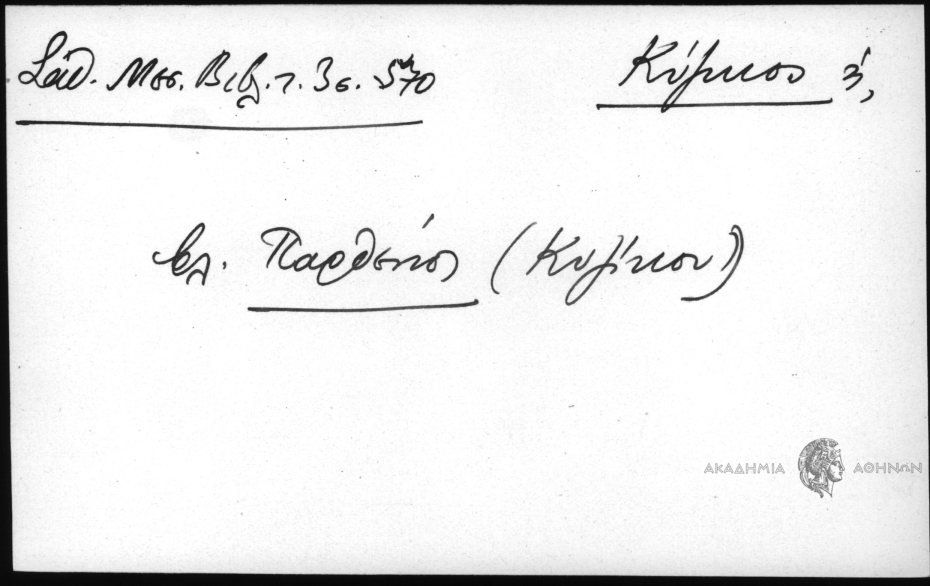 Σάθ. Μεσ. Βιβ. τ. 3 σ. 570
Κύζικος ἡ,
βλ. Παρθένιος (Κυζίκου)
ΑΚΑΔΗΜΙΑ ΑΘΗΝΩΝ